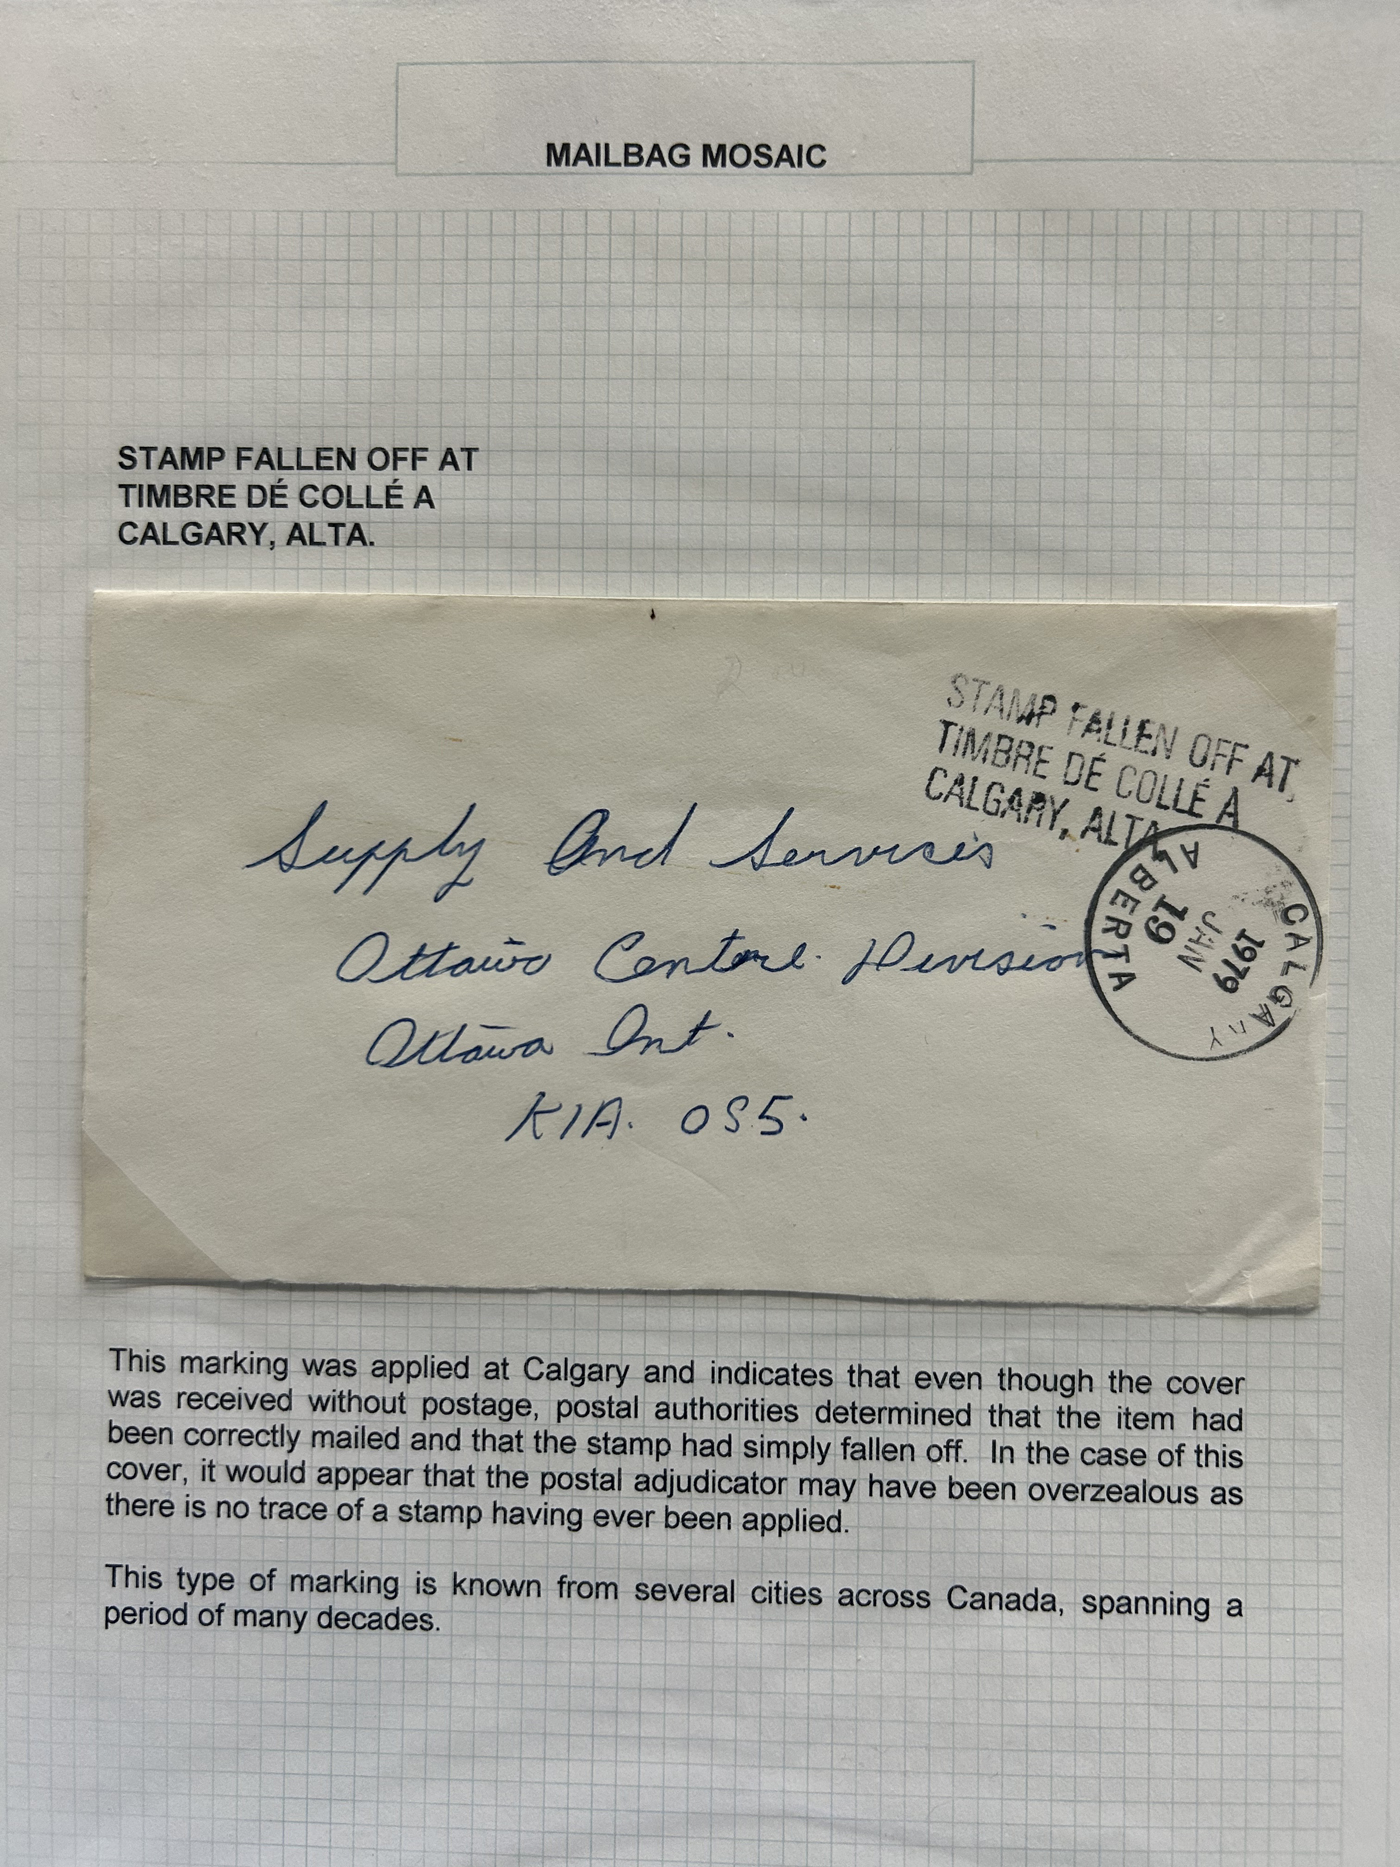 MAILBAG MOSAIC
STAMP FALLEN OFF AT
TIMBRE DÉ COLLÉ A
CALGARY, ALTA.
STAMP FALLEN OFF AT
TIMBRE DÉ COLLÉ A
CALGARY, ALTA.
CALGARY
1979
JAN
19
ALBERTA
Supply And Services
Ottawa Centre. Division
Ottawa Ont.
K1A. 0S5.
This marking was applied at Calgary and indicates that even though the cover
was received without postage, postal authorities determined that the item had
been correctly mailed and that the stamp had simply fallen off. In the case of this
cover, it would appear that the postal adjudicator may have been overzealous as
there is no trace of a stamp having ever been applied.
This type of marking is known from several cities across Canada, spanning a
period of many decades.